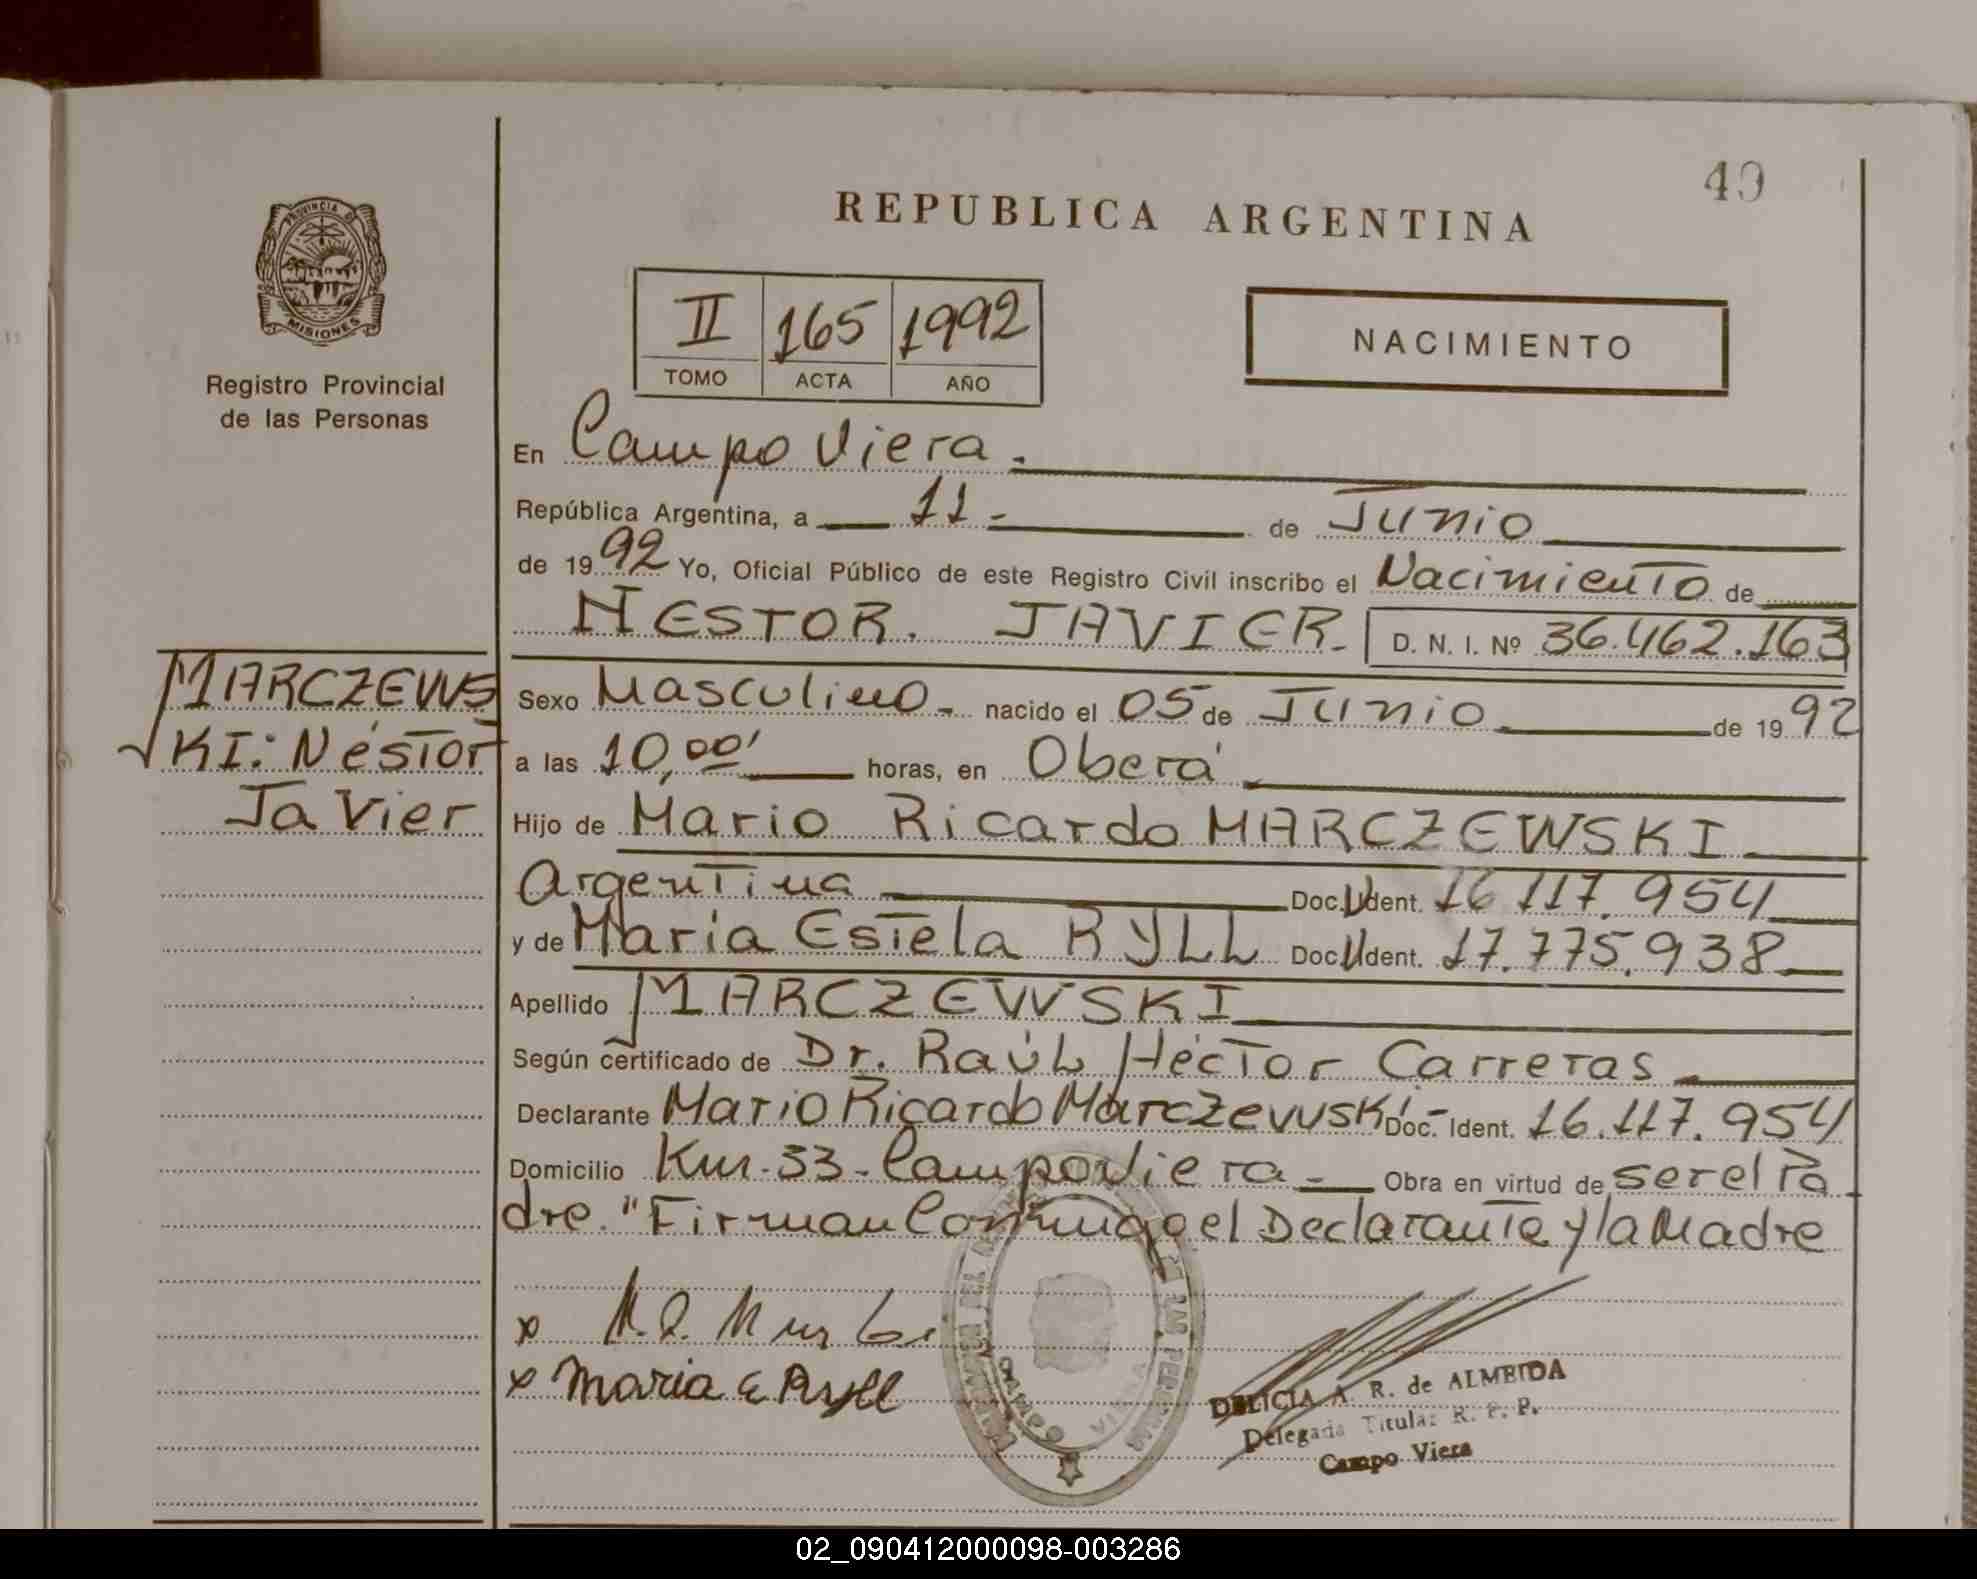 49
REPUBLICA ARGENTINA
PROVINCIA DE
MISIONES
Registro Provincial
de las Personas
II 165 1992
TOMO ACTA AÑO
NACIMIENTO
En Campo Viera.
República Argentina, a 11- de Junio
de 1992 Yo, Oficial Público de este Registro Civil inscribo el Nacimiento de
NESTOR. JAVIER. D. N. I. Nº 36.462.163
MARCZEWS
KI: Néstor
Javier
Sexo Masculino - nacido el 05 de Junio de 1992
a las 10,00' horas, en Oberá
Hijo de Mario Ricardo MARCZEWSKI
Argentina Doc. U Ident. 16 117.954
y de Maria Estela RYLL Doc U Ident. 17.775.938
Apellido MARCZEWSKI
Según certificado de Dr. Raúl Héctor Carreras
Declarante Mario Ricardo Marczewski - Doc. Ident. 16.117.954
Domicilio Km. 33 - Campo Viera - Obra en virtud de ser el Pa
dre. "Firman Conmigo el Declarante y la Madre
x
x Maria E Ryll
CAMPO VIERA
DELICIA A. R. de ALMEIDA
Delegada Titular R. P. P.
Campo Viera
02_090412000098-003286